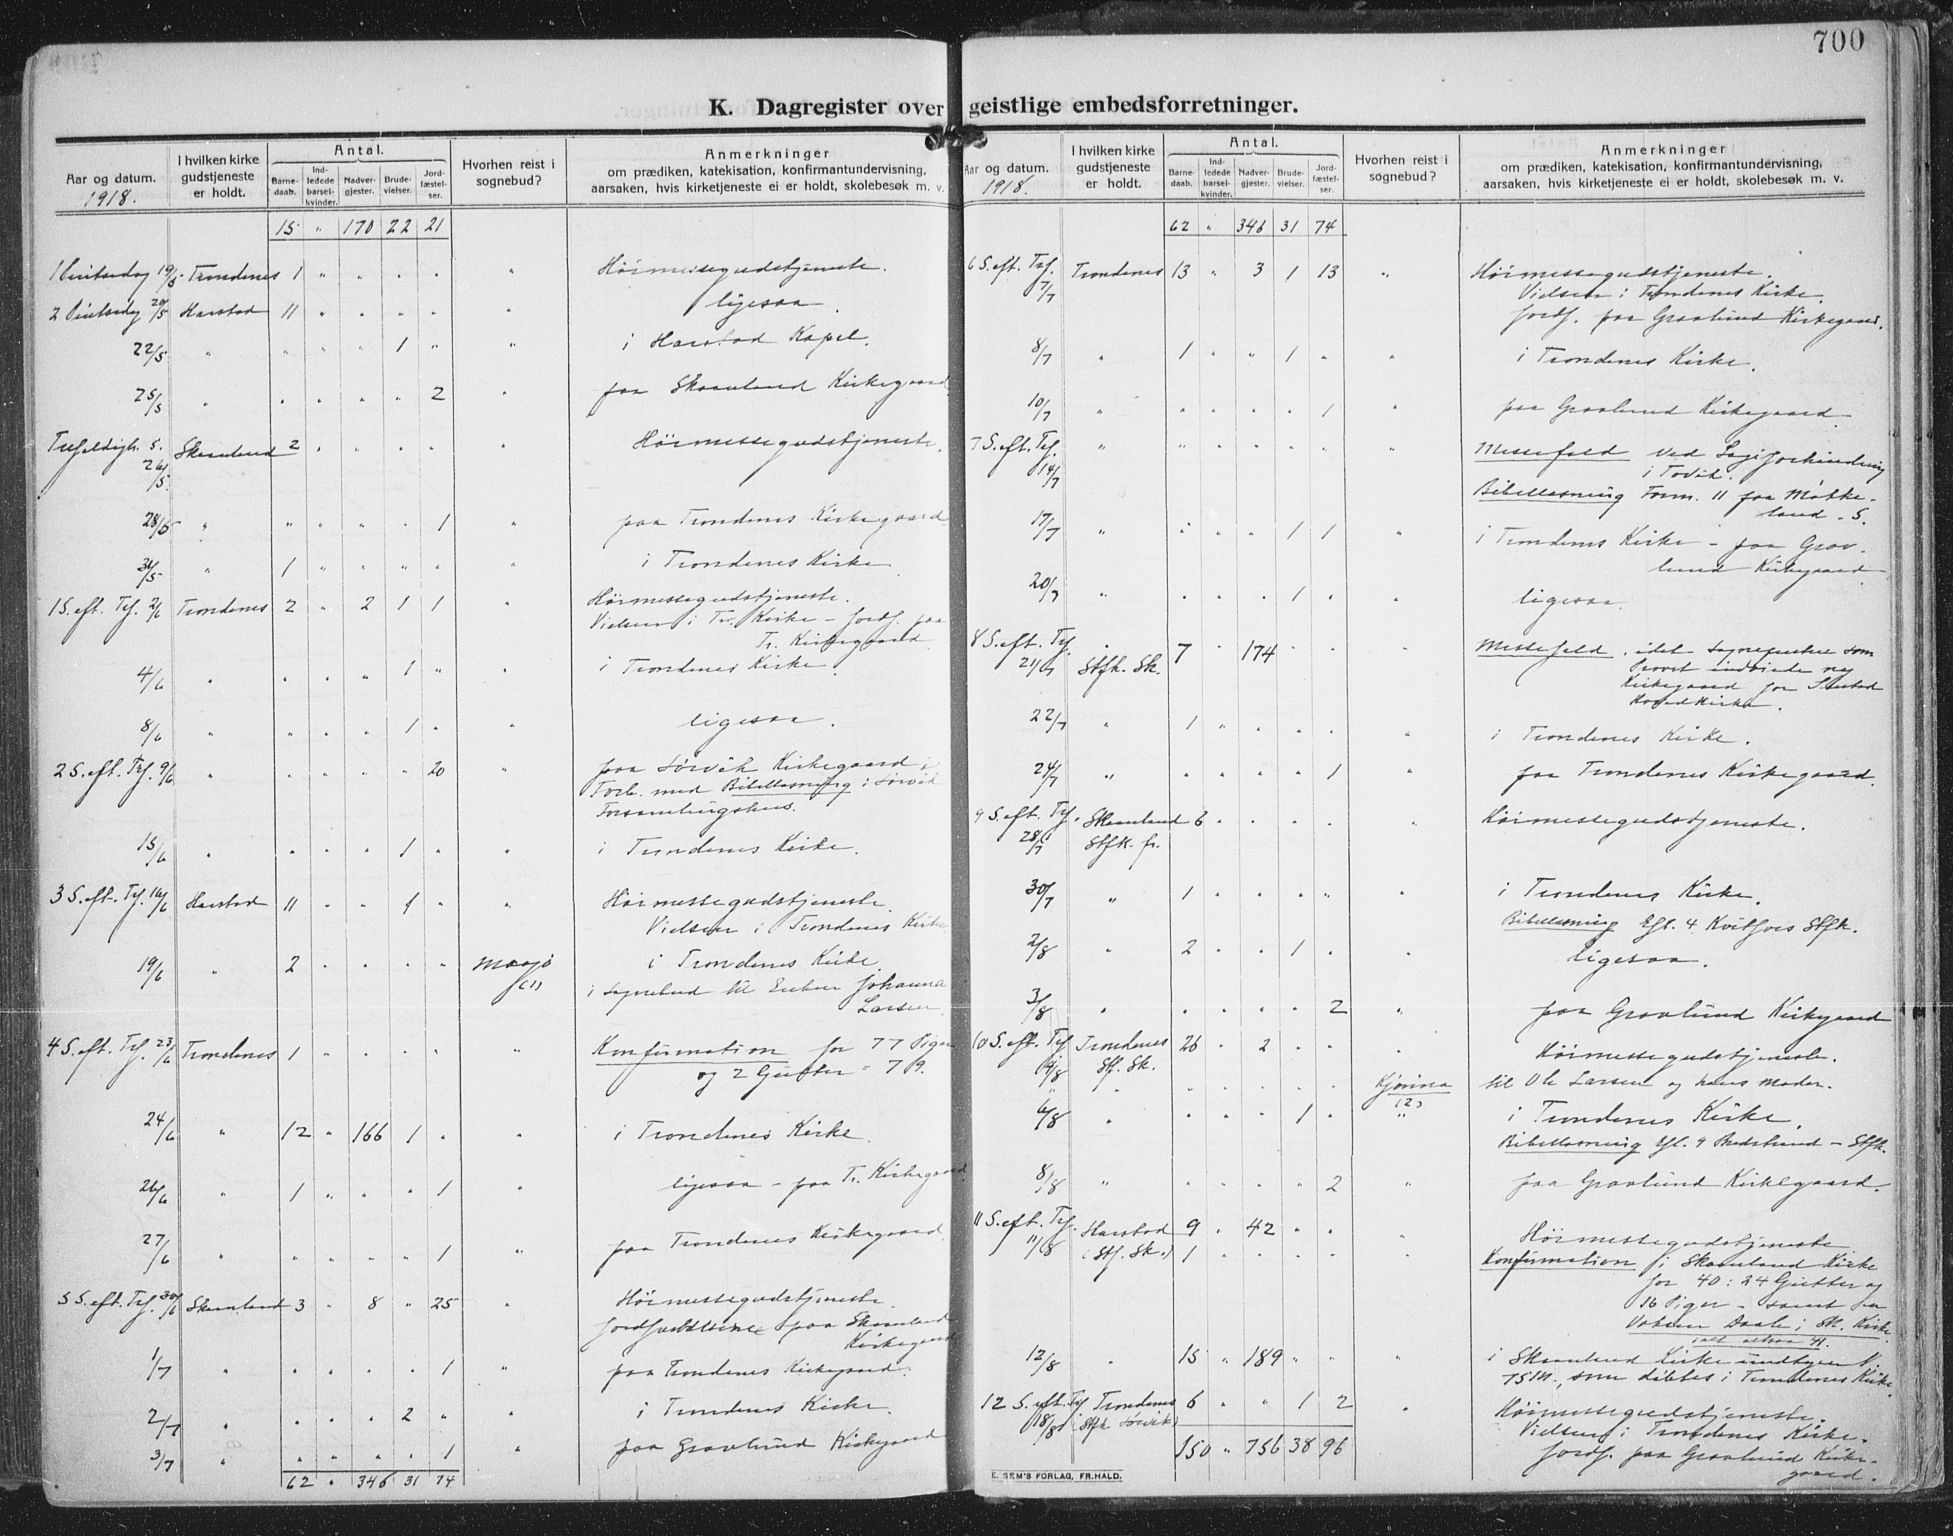 700
K. Dagregister over geistlige embedsforretninger.
Aar og datum. 1918.
I hvilken kirke gudstjeneste er holdt.
Antal.
Barnedaab.
Indledede barselkvinder.
Nadvergjester.
Brudevielser.
Jordfæstelser.
Hvorhen reist i sognebud?
Anmerkninger
om prædiken, katekisation, konfirmantundervisning,
aarsaken, hvis kirketjeneste ei er holdt, skolebesøk m. v.
15 " 170 22 21
1 Pintsedag 19/5 Trondenes 1 " " " " " Høimessegudstjeneste.
2 Pintsedag 20/5 Harstad 11 " " " " " ligesaa.
22/5 " " " " 1 " " i Harstad Kapel.
25/5 " " " " " 2 " paa Skaanland Kirkegaard
Trefoldigh. S. 26/5 Skaanland 2 " " " " " Høimessegudstjeneste.
28/5 " " " " " 1 " paa Trondenes Kirkegaard
31/5 " 1 " " " " " i Trondenes Kirke
1 S. eft. Trf. 2/6 Trondenes 2 " 2 1 1 " Høimessegudstjeneste.
Vielsen i Tr. Kirke - Jordf. paa
Tr. Kirkegaard
4/6 " " " " 1 " " i Trondenes Kirke.
8/6 " " " " 1 " " ligesaa.
2 S. eft. Trf. 9/6 " " " " " 20 " paa Sørvik Kirkegaard i
Forb. med Bibellæsning i Sørvik
Forsamlingshus.
15/6 " " " " 1 " " i Trondenes Kirke.
3 S. eft. Trf. 16/6 Harstad 11 " " 1 " " Høimessegudstjeneste.
Vielsen i Trondenes Kirke
19/6 " 2 " " " " (1) i Trondenes Kirke
i Sognebud til Enken Johanna
Larsen.
4 S. eft. Trf. 23/6 Trondenes 1 " " " " " Konfirmation for 77 Piger
og 2 Gutter =
24/6 " 12 " 166 1 " " i Trondenes Kirke.
26/6 " 1 " " " 1 " ligesaa - paa Tr. Kirkegaard
27/6 " " " " " 1 " paa Trondenes Kirkegaard.
5 S. eft. Trf. 30/6 Skaanland 3 " 8 " 25 " Høimessegudstjeneste.
Jordfæstelserne paa Skaanland
Kirkegaard
1/7 " " " " " 1 " paa Trondenes Kirkegaard.
2/7 " " " " 2 " " i Trondenes Kirke.
3/7 " " " " " 1 " paa Gravlund Kirkegaard
62 " 346 31 74
Aar og datum. 1918.
I hvilken kirke gudstjeneste er holdt.
Antal.
Barnedaab.
Indledede barselkvinder.
Nadvergjester.
Brudevielser.
Jordfæstelser.
Hvorhen reist i sognebud?
Anmerkninger
om prædiken, katekisation, konfirmantundervisning,
aarsaken, hvis kirketjeneste ei er holdt, skolebesøk m. v.
62 " 346 31 74
6 S. eft. Trf. 7/7 Trondenes 13 " 3 1 13 " Høimessegudstjeneste.
Vielsen i Trondenes Kirke.
Jordf. paa Gravlund Kirkegaard.
8/7 " 1 " " 1 " " i Trondenes Kirke.
10/7 " " " " " 1 " paa Gravlund Kirkegaard.
7 S. eft. Trf. 14/7 " " " " " " " Messefald ved
i Tovik.
Bibellæsning Form. 11 paa
land - S.
17/7 " " " " 1 1 " i Trondenes Kirke - paa Grav-
lund Kirkegaard
20/7 " " " " 1 " " ligesaa.
8 S. eft. Trf. 21/7 " Stfk. Sk. 7 " 174 " " Messefald, idet Sognepresten som
Provst indviede ny
Kirkegaard for
Hovedkirke.
22/7 " 1 " " " " " i Trondenes Kirke.
24/7 " " " " " 1 " paa Trondenes Kirkegaard.
9 S. eft. Trf. 28/7 Skaanland Stfk. fr. 6 " " " " " Høimessegudstjeneste.
30/7 " 1 " " " " " i Trondenes Kirke.
Bibellæsning Eft. 4 Kvitfors Stfk.
2/8 " 2 " " 1 " " ligesaa.
3/8 " " " " " 2 " paa Gravlund Kirkegaard
10 S. eft. Trf. 4/8 Trondenes Stf. Sk. 26 " 2 " " " Høimessegudstjeneste.
" " " " " " (2) til Ole Larsen og hans Moder.
6/8 " " " " 1 " " i Trondenes Kirke.
Bibellæsning Eft. 9 - Stfk.
8/8 " " " " " 2 " paa Gravlund Kirkegaard.
11 S. eft. Trf. 11/8 Harstad 9 " 42 " " " Høimessegudstjeneste
(Stf. Sk.) 1 " " " " " Konfirmation i Skaanland Kirke
for 40: 24 Gutter og
16 Piger - samt en
Voksen Daab i Sk. Kirke
ialt altsaa 41.
12/8 " 15 " 189 " " " i Skaanland Kirke
som døbtes i Trondenes Kirke.
12 S. eft. Trf. 18/8 Trondenes (Stfk Sørvik) 6 " " 1 2 " Høimessegudstjeneste.
Vielsen i Trondenes Kirke.
Jordf. paa Gravlund Kirke-
gaard.
150 " 756 38 96
E. SEM'S FORLAG, FR.HALD.